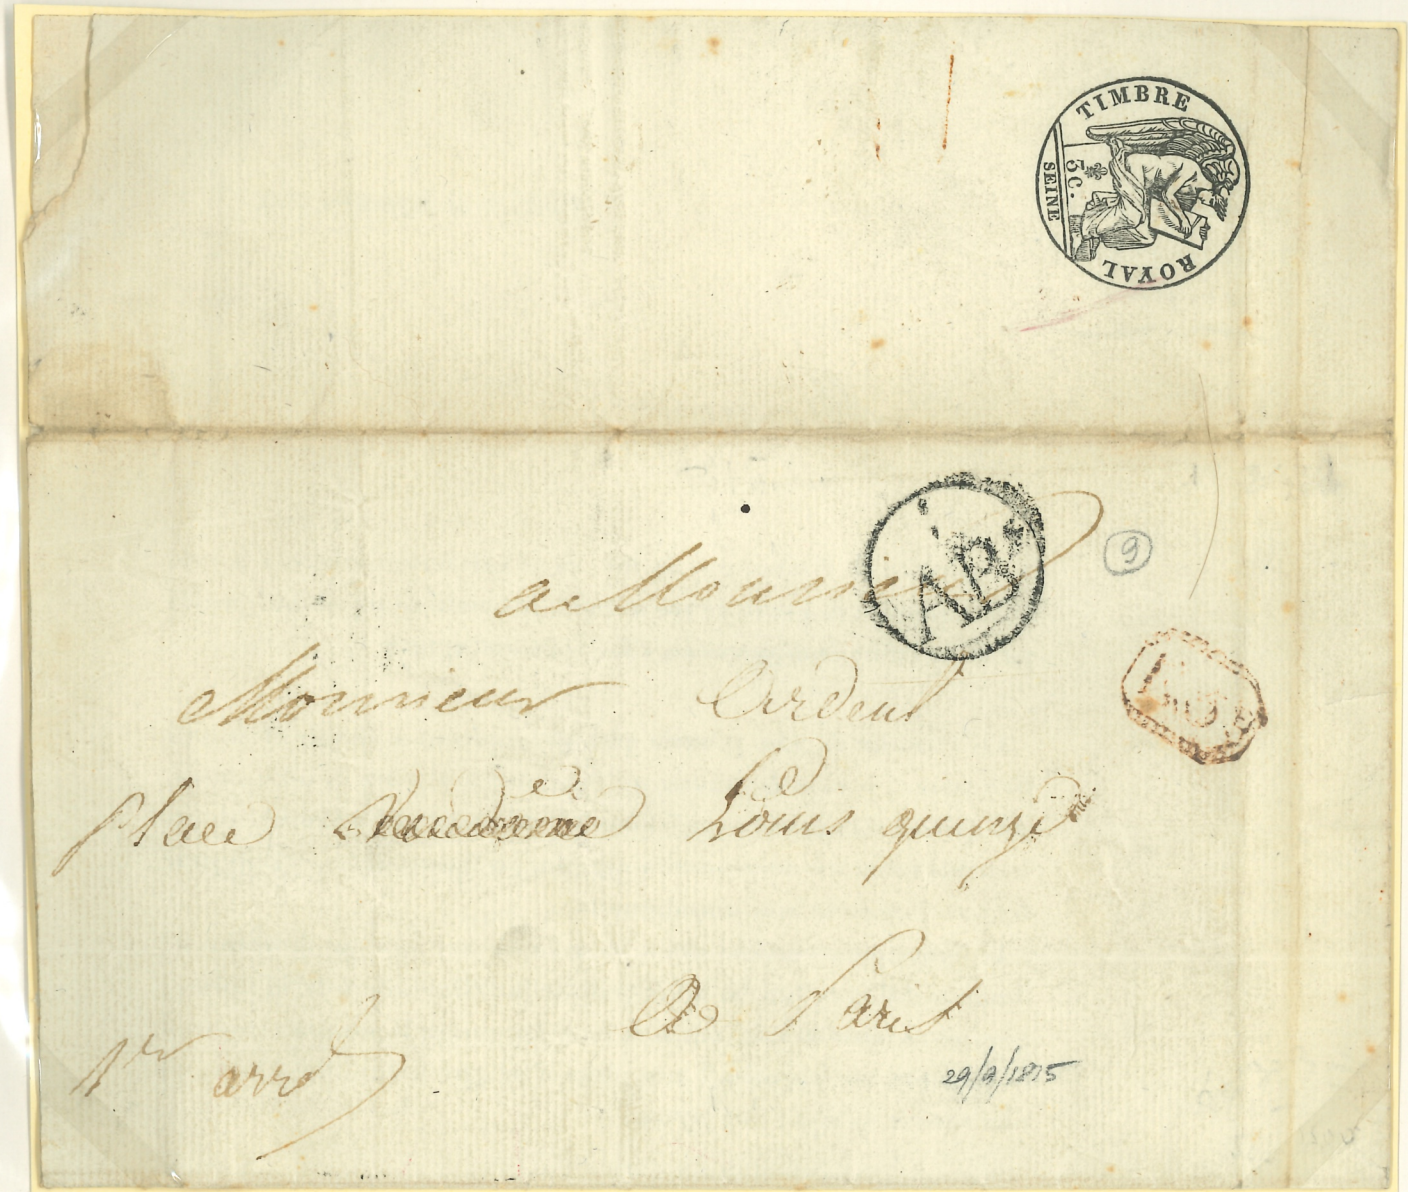 TIMBRE
ROYAL
5C.
SEINE
AB
9
a Monsieur
Monsieur Ardent
place Louis quinze
A Paris
1er arrd
29/9/1815